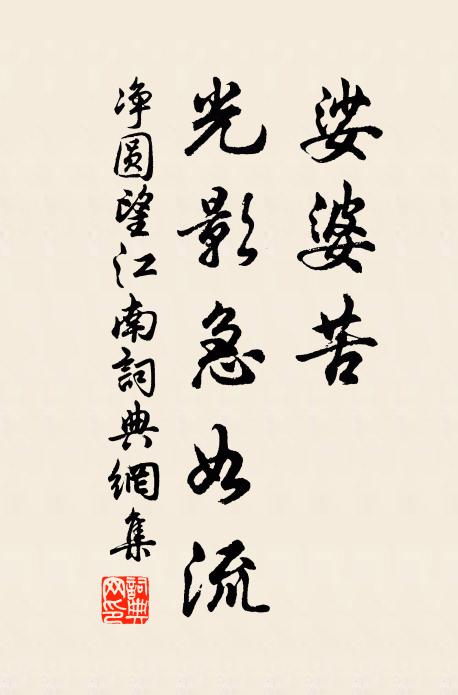 娑婆苦
光影急如流
净圆望江南詞典網集
詞典网印